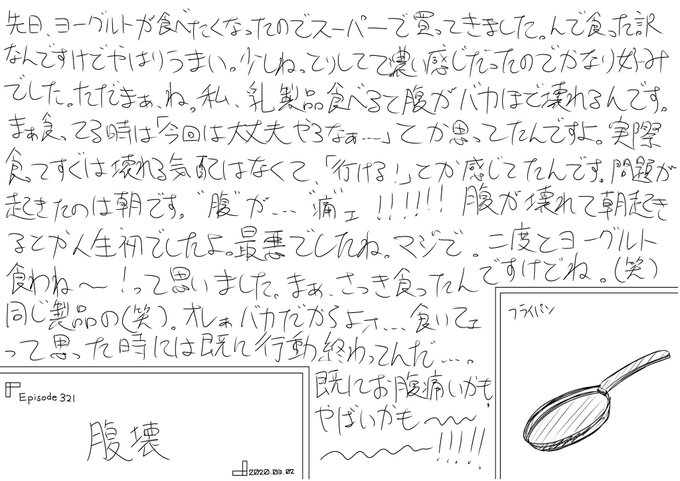 先日、ヨーグルトが食べたくなったのでスーパーで買ってきました。んで食った訳
なんですけどやはりうまい。少しねっとりしてて濃い感じだったのでかなり好み
でした。ただまぁ、ね。私、乳製品食べると腹がバカほど壊れるんです。
まぁ食ってる時は「今回は大丈夫やろなぁ…」とか思ってたんですよ。実際
食ってすぐは壊れる気配はなくて、「行ける!」とか感じてたんです。問題が
起きたのは朝です。"腹"が… "痛ェ!!!!!! 腹が壊れて朝起き
るとか人生初でしたよ。最悪でしたね。マジで。二度とヨーグルト
食わね〜!って思いました。まぁ、さっき食ったんですけどね。(笑)
同じ製品の(笑)。オレぁバカだからよォ…食いてェ
って思った時には既に行動終わってんだ…。
既にお腹痛いかも。
やばいかも〜〜
〜〜〜!!!!!
フライパン
Episode 321
腹壊
2020.03.02